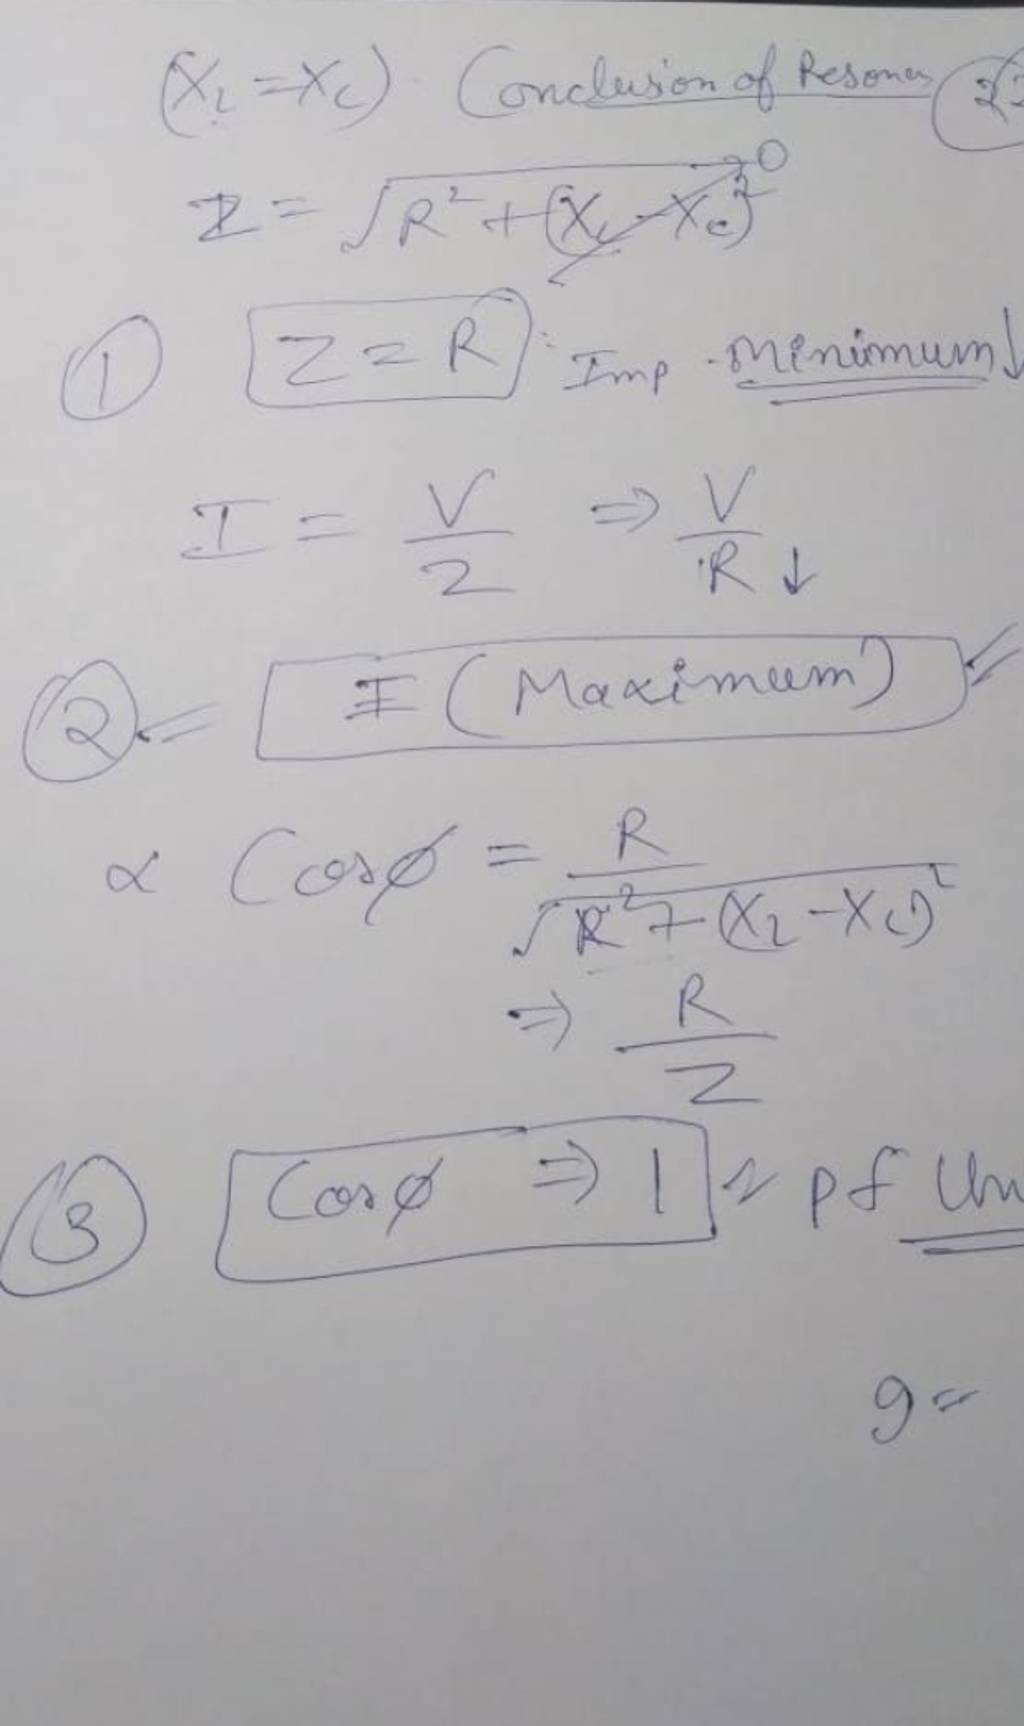 (X_L = X_C) Conclusion of Resonan
Z = √R² + (X_L - X_C)² 0
① Z = R : Imp - minimum ↓
I = V/Z ⇒ V/R ↓
② I (Maximum)
∝ Cosφ = R/√R² + (X_L - X_C)²
⇒ R/Z
③ Cosφ ⇒ 1 pf Un
9 =